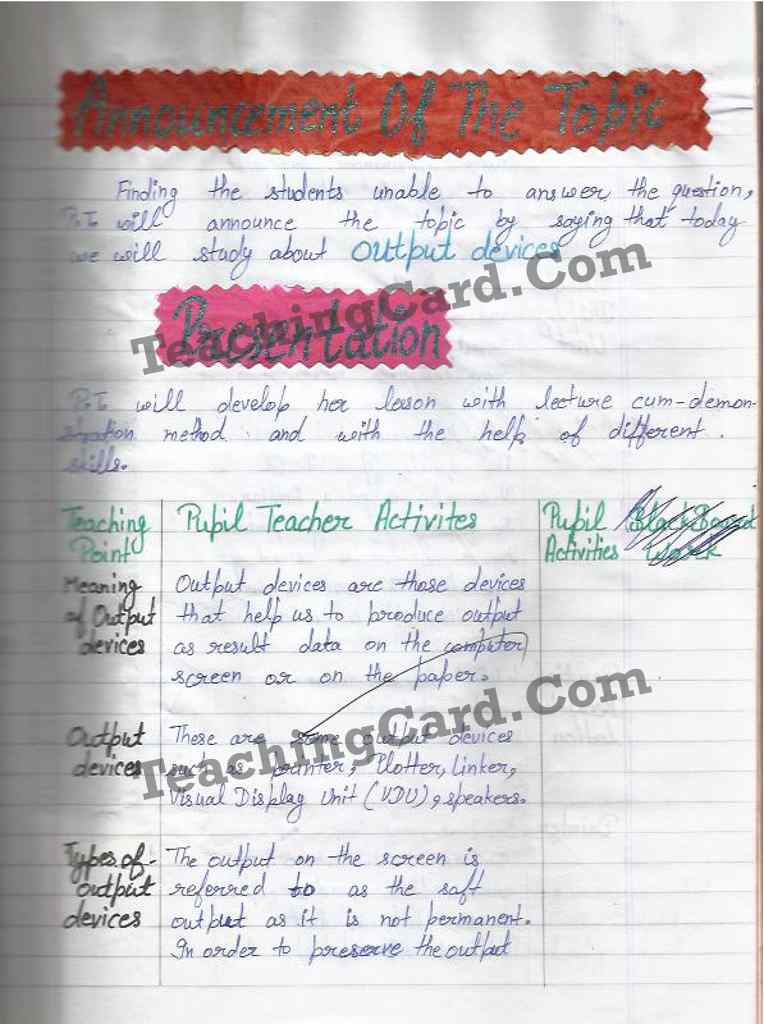 Announcement Of The Topic
Finding the students unable to answer the question,
P.T will announce the topic by saying that today
we will study about Output devices
Presentation
P.T will develop her lesson with lecture cum-demon-
stration method and with the help of different
skills.
Teaching Point
Pupil Teacher Activites
Pupil Activities
Black Board Work
Meaning of Output devices
Output devices are those devices
that help us to produce output
as result data on the computer
screen or on the paper.
Output devices
These are some output devices
such as printer, Plotter, Linker,
Visual Display Unit (VDU), speakers.
Types of output devices
The output on the screen is
referred to as the soft
output as it is not permanent.
In order to preserve the output
TeachingCard.Com
TeachingCard.Com